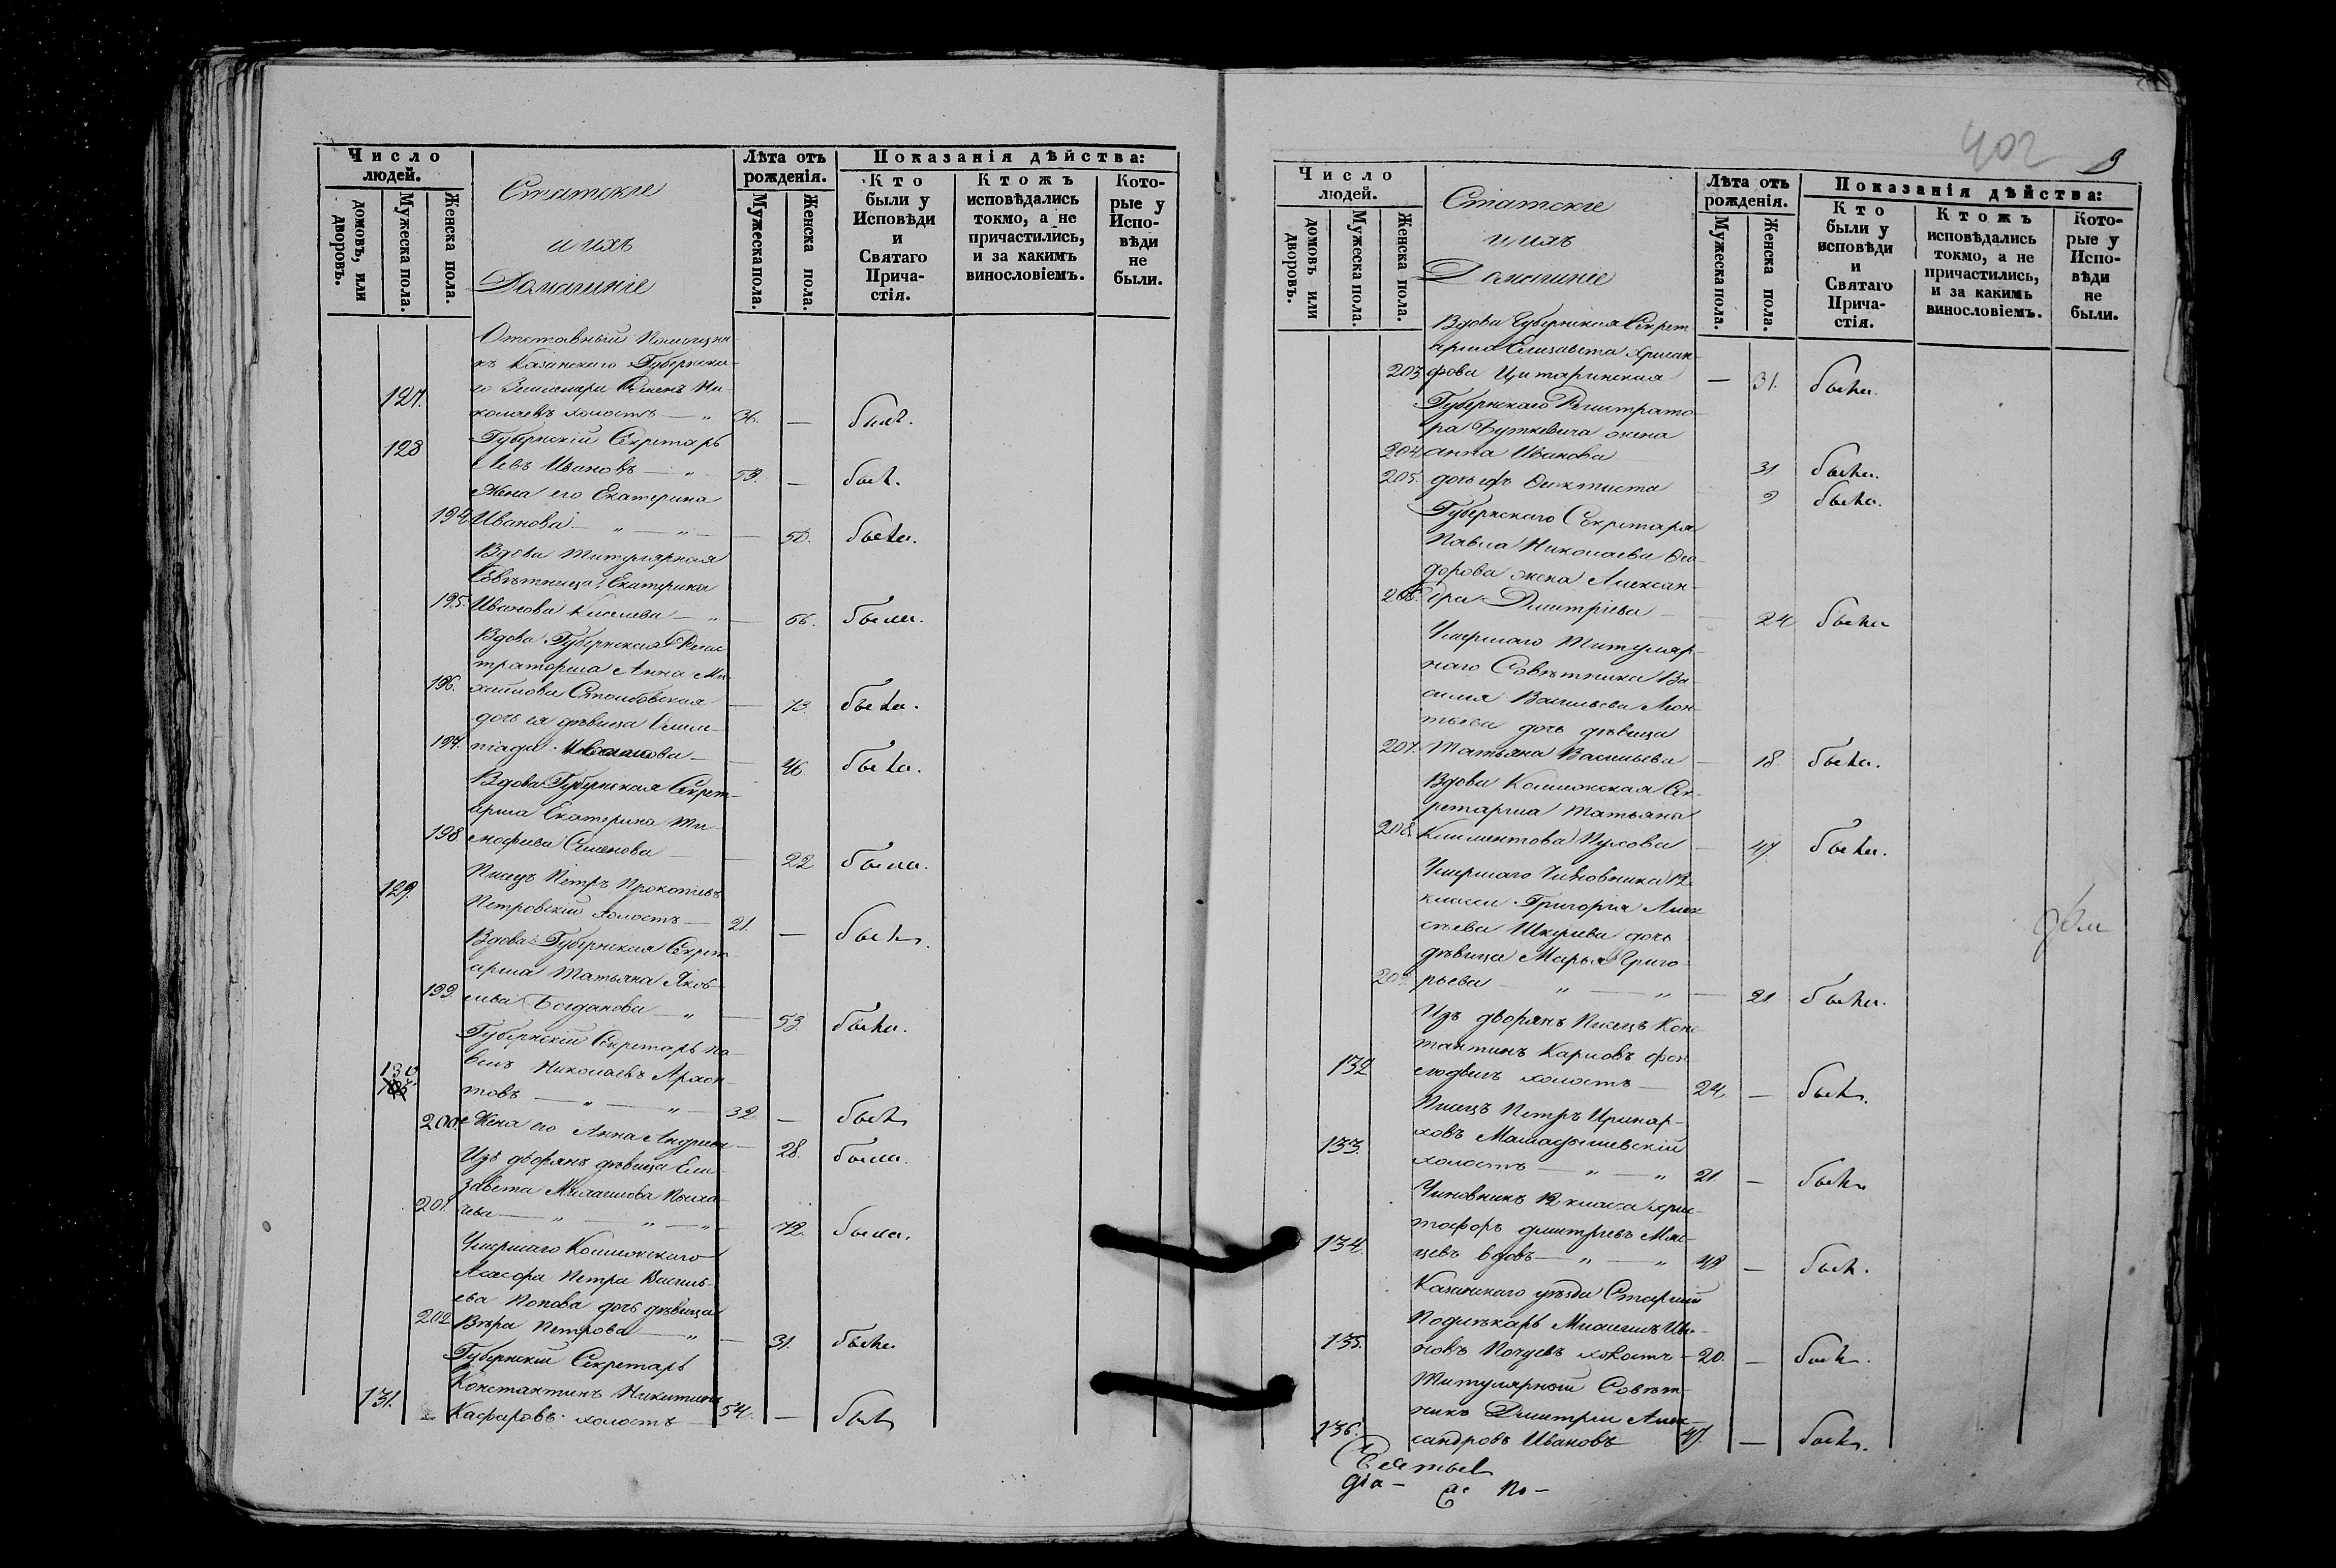 Число людей.
домовъ, или дворовъ.
Мужеска пола.
Женска пола.
Статскіе
и ихъ
Домашніе
Лѣта отъ рожденія.
Мужеска пола.
Женска пола.
Показанія дѣйства:
Кто были у Исповѣди и Святаго Прича-стія.
Ктожъ исповѣдались токмо, а не причастились, и за какимъ винословіемъ.
Кото-рые у Испо-вѣди не были.
Отставный Помощни
къ Казанскаго Губернска-
го Семенъ Ни-
127. колаевъ холостъ — „ 36. — былъ.
Губернскій Секретарь
128 Левъ Ивановъ — „ 53. — былъ.
Жена его Екатерина
194 Иванова — „ — „ — 50. была.
Вдова Титулярная
Совѣтница Екатерина
195. Иванова Киселева — „ — 66. была.
Вдова Губернская Регис
траторша Анна Ми
196. хайлова Столбовская — 73. была.
дочь ея дѣвица Олим-
197. піада Иванова — 46 была.
Вдова Губернская Секрет-
арша Екатерина Ти-
198 мофеева Семенова — 22 была.
Писецъ Петръ Прокопьевъ
129. Петровскій холостъ — 21. — былъ.
Вдова Губернская Секрет
арша Татьяна Яков-
199. лева Богданова — „ — 53. была.
Губернскій Секретарь Па-
130 велъ Николаевъ
товъ — „ — „ — 32. — былъ
200 Жена его Анна Андреева — 28. была.
Изъ дворянъ дѣвица Ели-
завета Михайлова
201. чева — „ — „ — „ 72. была.
Умершаго Коллежскаго
Асесора Петра Василь-
ева Попова дочь дѣвица
202 Вѣра Петрова — „ — 31. была.
Губернскій Секретарь
Константинъ Никитинъ
131. холостъ — 54. — былъ
402
9
Число людей.
домовъ или дворовъ.
Мужеска пола.
Женска пола.
Статскіе
и ихъ
Домашніе
Лѣта отъ рожденія.
Мужеска пола.
Женска пола.
Показанія дѣйства:
Кто были у исповѣди и Святаго Прича-стія.
Ктожъ исповѣдались токмо, а не причастились, и за какимъ винословіемъ.
Кото-рые у Испо-вѣди не были.
Вдова Губернская Секрет
арша Елизавета Хрисан-
203 фова — 31. была.
Губернскаго Регистрато
ра Буткевича жена
204 анна Иванова 31 была.
205. дочь ихъ Феоктиста 9 была.
Губернскаго Секретаря
Павла Николаева Фео-
дорова жена Алексан-
206. дра Дмитріева — 24 была
Умершаго Титуляр-
наго Совѣтника Ва-
силія Васильева Леон-
тьева дочь дѣвица
207. Татьяна Васильева — 18. была.
Вдова Коллежская Сек-
ретарша Татьяна
208. Климентова Пухова — 47 была.
Умершаго Чиновника 12
класса Григорія Алек
сѣева дочь
дѣвица Марья Григо-
209. рьева — „ — „ — 21 была.
Изъ дворянъ Писецъ Конс
тантинъ Карловъ фон
132 холостъ — 24. — былъ.
Писецъ Петръ Иринар-
ховъ
133. холостъ — „ — „ 21. — былъ
Чиновникъ 12 класса Хрис-
тофоръ Дмитріевъ
134. вдовъ — „ — „ 49 — былъ.
Казанскаго уѣзда Старшій
Подлѣкарь Михаилъ Ива-
135. новъ холостъ — 20. — былъ.
Титулярный Совѣт-
никъ Дмитрій Алек-
136. сандровъ Ивановъ 47. — былъ.